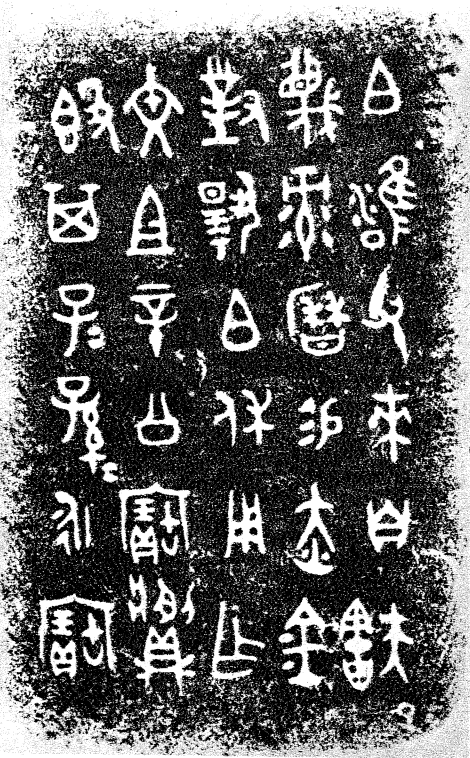 白雍父來自㝬
蔑录歷易赤金
對揚白休用乍
文且辛公寶䵼
𣪘其子子孫孫永寶